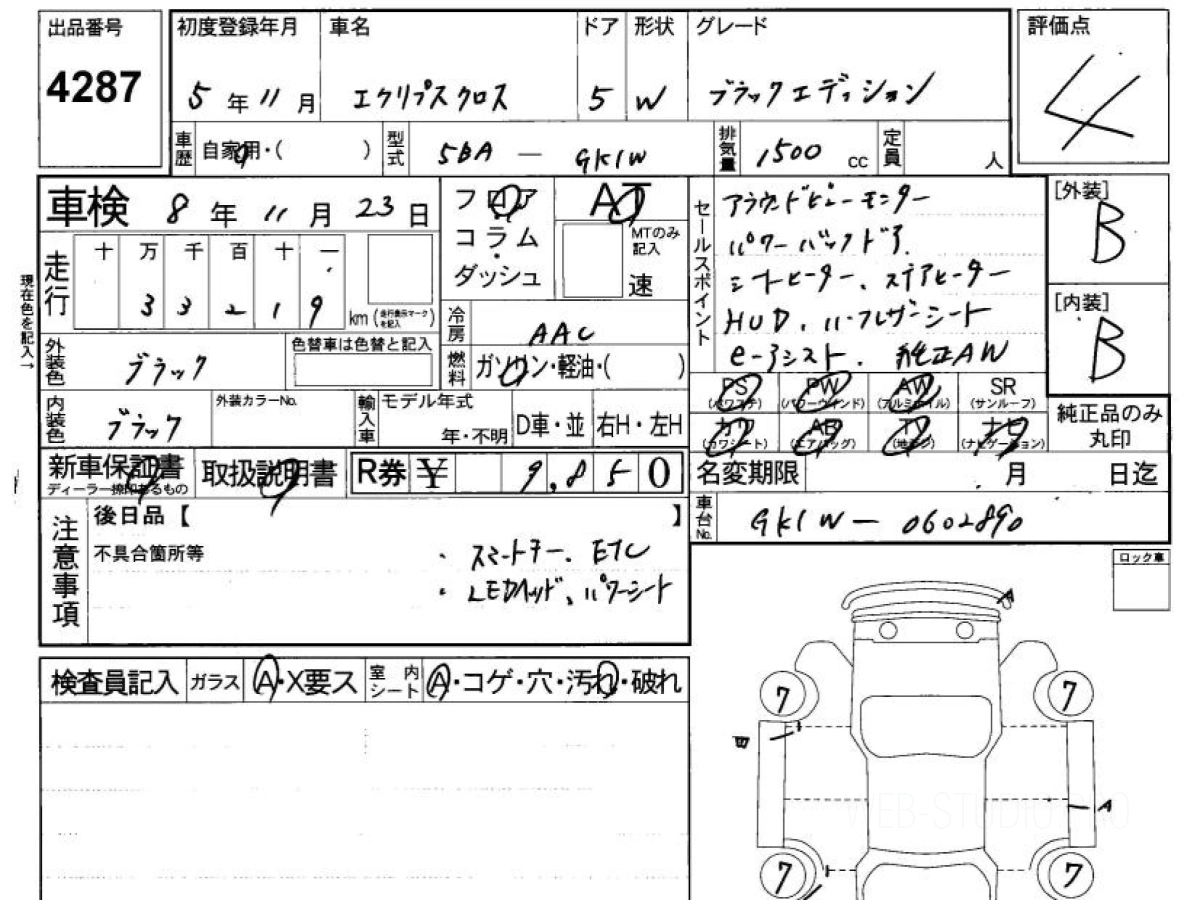 出品番号
4287
初度登録年月 車名 ドア 形状 グレード
5年11月 エクリプスクロス 5 W ブラックエディション
評価点
4
車歴 自家用・( ) 型式 5BA - GK1W 排気量 1500 cc 定員 人
車検 8年11月23日
フロア コラム・ダッシュ
AT
MTのみ記入
速
セールスポイント
アラウンドビューモニター
パワーバックドア
シートヒーター、ステアヒーター
HUD、ハーフレザーシート
e-アシスト、純正AW
[外装]
B
[内装]
B
現在色を記入→
走行 十 万 千 百 十 一
3 3 2 1 9 km (走行表示マークを記入)
冷房 AAC
外装色 ブラック
色替車は色替と記入
燃料 ガソリン・軽油・( )
内装色 ブラック
外装カラーNo.
輸入車 モデル年式
年・不明
D車・並 右H・左H
PS (パワステ) PW (パワーウィンド) AW (アルミホイル) SR (サンルーフ)
カワ (カワシート) AB (エアバッグ) TV (地デジ) ナビ (ナビゲーション)
純正品のみ丸印
新車保証書
ディーラー捺印あるもの
取扱説明書
R券 ¥ 9,850
名変期限 月 日迄
車台No. GK1W-0602890
注意事項
後日品【 】
不具合箇所等
・スマートキー、ETC
・LEDヘッド、パワーシート
ロック車
検査員記入 ガラス A・X要ス 室内シート A・コゲ・穴・汚れ・破れ
A
7 7
A
7 7
WEB-STUDIO PRO